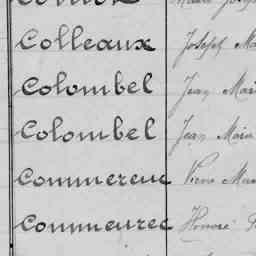 Colleaux Josef Ma
Colombel Jean Mari
Colombel Jean Marie
Commereuc Pierre Mar
Commeurec Honoré